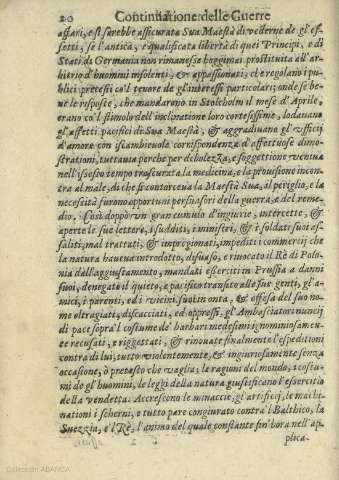 20 Continuatione delle Guerre
affari, e si sarebbe assicurata Sua Maestà di vederne de gl'ef-
fetti, se l'antica, e qualificata libertà di quei Principi, e di
Stati di Germania non rimanesse hoggimai prostituita all'ar-
bitrio d'huomini insolenti, & appassionati, che regolano i pu-
blici pretesti co'l tenore de gl'interessi particolari; onde se be-
ne le risposte, che mandarono in Stolcholm il mese d'Aprile,
erano co'l stimolo dell'inclinatione loro cortesissime, lodauano
gl'affetti pacifici di Sua Maestà, & aggradiuano gl'vfficij
d'amore con iscambieuole corrispondenza d'affettuose dimo-
strationi, tuttauia perche per debolezza, e soggettione veniua
nell'istesso tempo trascurata la medicina, e la prouisione incon-
tra al male, di che fù contorceua la Maestà Sua, il periglio, e la
necessità furono opportuni persuasori della guerra, e del reme-
dio. Così doppò vn gran cumulo d'ingiurie, intercette, &
aperte le sue lettere, i sudditi, i ministri, & i soldati suoi as-
saliti, mal trattati, & impregionati, impediti i commercij che
la natura haueua introdotto, disuaso, e riuocato il Rè di Polo-
nia dall'aggiustamento, mandati eserciti in Prussia a danni
suoi, denegato il quieto, e pacifico transito alle sue genti, gl'a-
mici, i parenti, ed i vicini suoi in onta, & offesa del suo no-
me oltragiati, discacciati, ed oppressi, gl'Ambasciatori nuncij
di pace sopra'l costume de' barbari medesimi ignominiosamen-
te recusati, e riggettati, & rinouate finalmente l'espeditioni
contra di lui, tutto violentemente, & ingiuriosamente senza
occasione, ò pretesto che vaglia; le ragioni del mondo, i costu-
mi de gl'huomini, le leggi della natura giustificano l'esercitio
della vendetta. Accrescono le minaccie, gl'artificij, le machi-
nationi i scherni, e tutto pare congiurato contra'l Balthico, la
Suezzia, e'l Rè, l'animo del quale constante fin'hora nell'ap-
plica-
Colección ABANCA